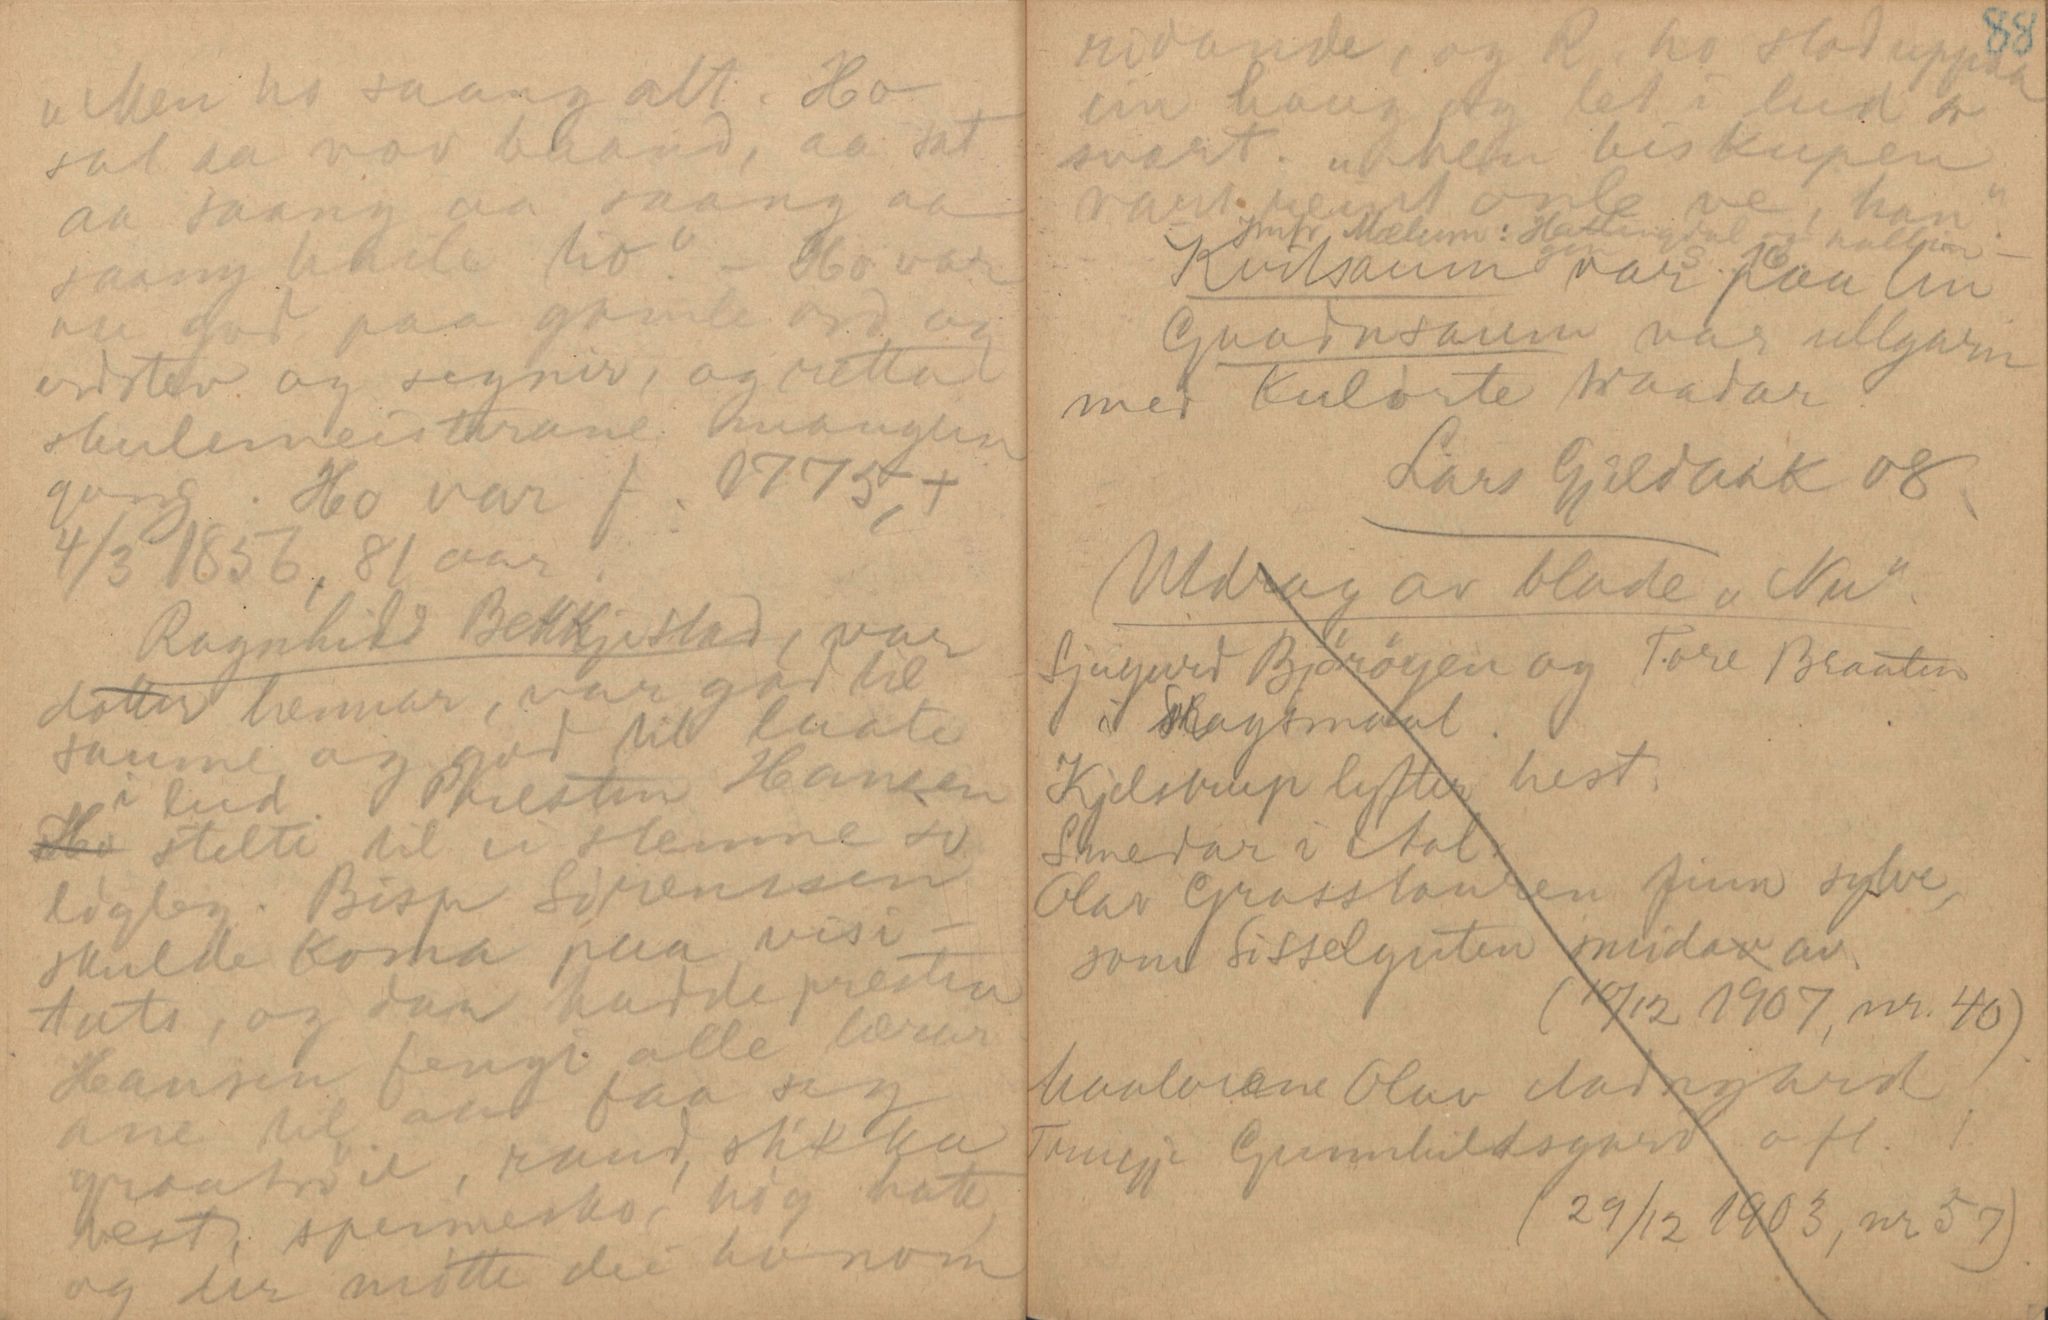 „Men ho saang alt. Ho
sat aa vov baand, aa sat
aa saang aa saang aa
saang heile tio". – Ho var
au god paa gamle ord og
ordstev og segnir, og retta
skulemeistarane mangein
gong. Ho var f. 1775, +
4/3 1856, 81 aar.
Ragnhild Bekkjistad, var
dotter hennar, var god til
saume og god til laate
i lud. Presten Hansen
Ho stelte til ei stemne so
lögleg. Bisp Sörenssen
skulde koma paa visi-
tats, og daa hadde presten
Hansen fengi alle lærar
ane til aa faa seg
graatröie, raud, stikka
vest, spennesko, høg hatt,
og der mötte dei honom
88
ridande, og R. ho stod uppaa
ein haug og let i lud so
svart. „Men biskupen
vart reint onle ve, han".
Jmfr Mælum: Hallingdal og hallin-
gen s. 16
Kvitsaum var paa lin
Graadnsaum var ullgarn
med kulörte traadar.
Lars Gjeldaak 08.
Utdrag av blade „Nu".
Sjugurd Björöyen og Tore Braaten
i slagsmaal.
Kjelstrup lyfter hest.
Smedar i Aal.
Olav Grasstauren finn sylve,
som Sisselguten smidar av.
(10/12 1907, nr. 40)
Olav Aadngard
Gunnhildsgard o fl.
(29/12 1903, nr 57)